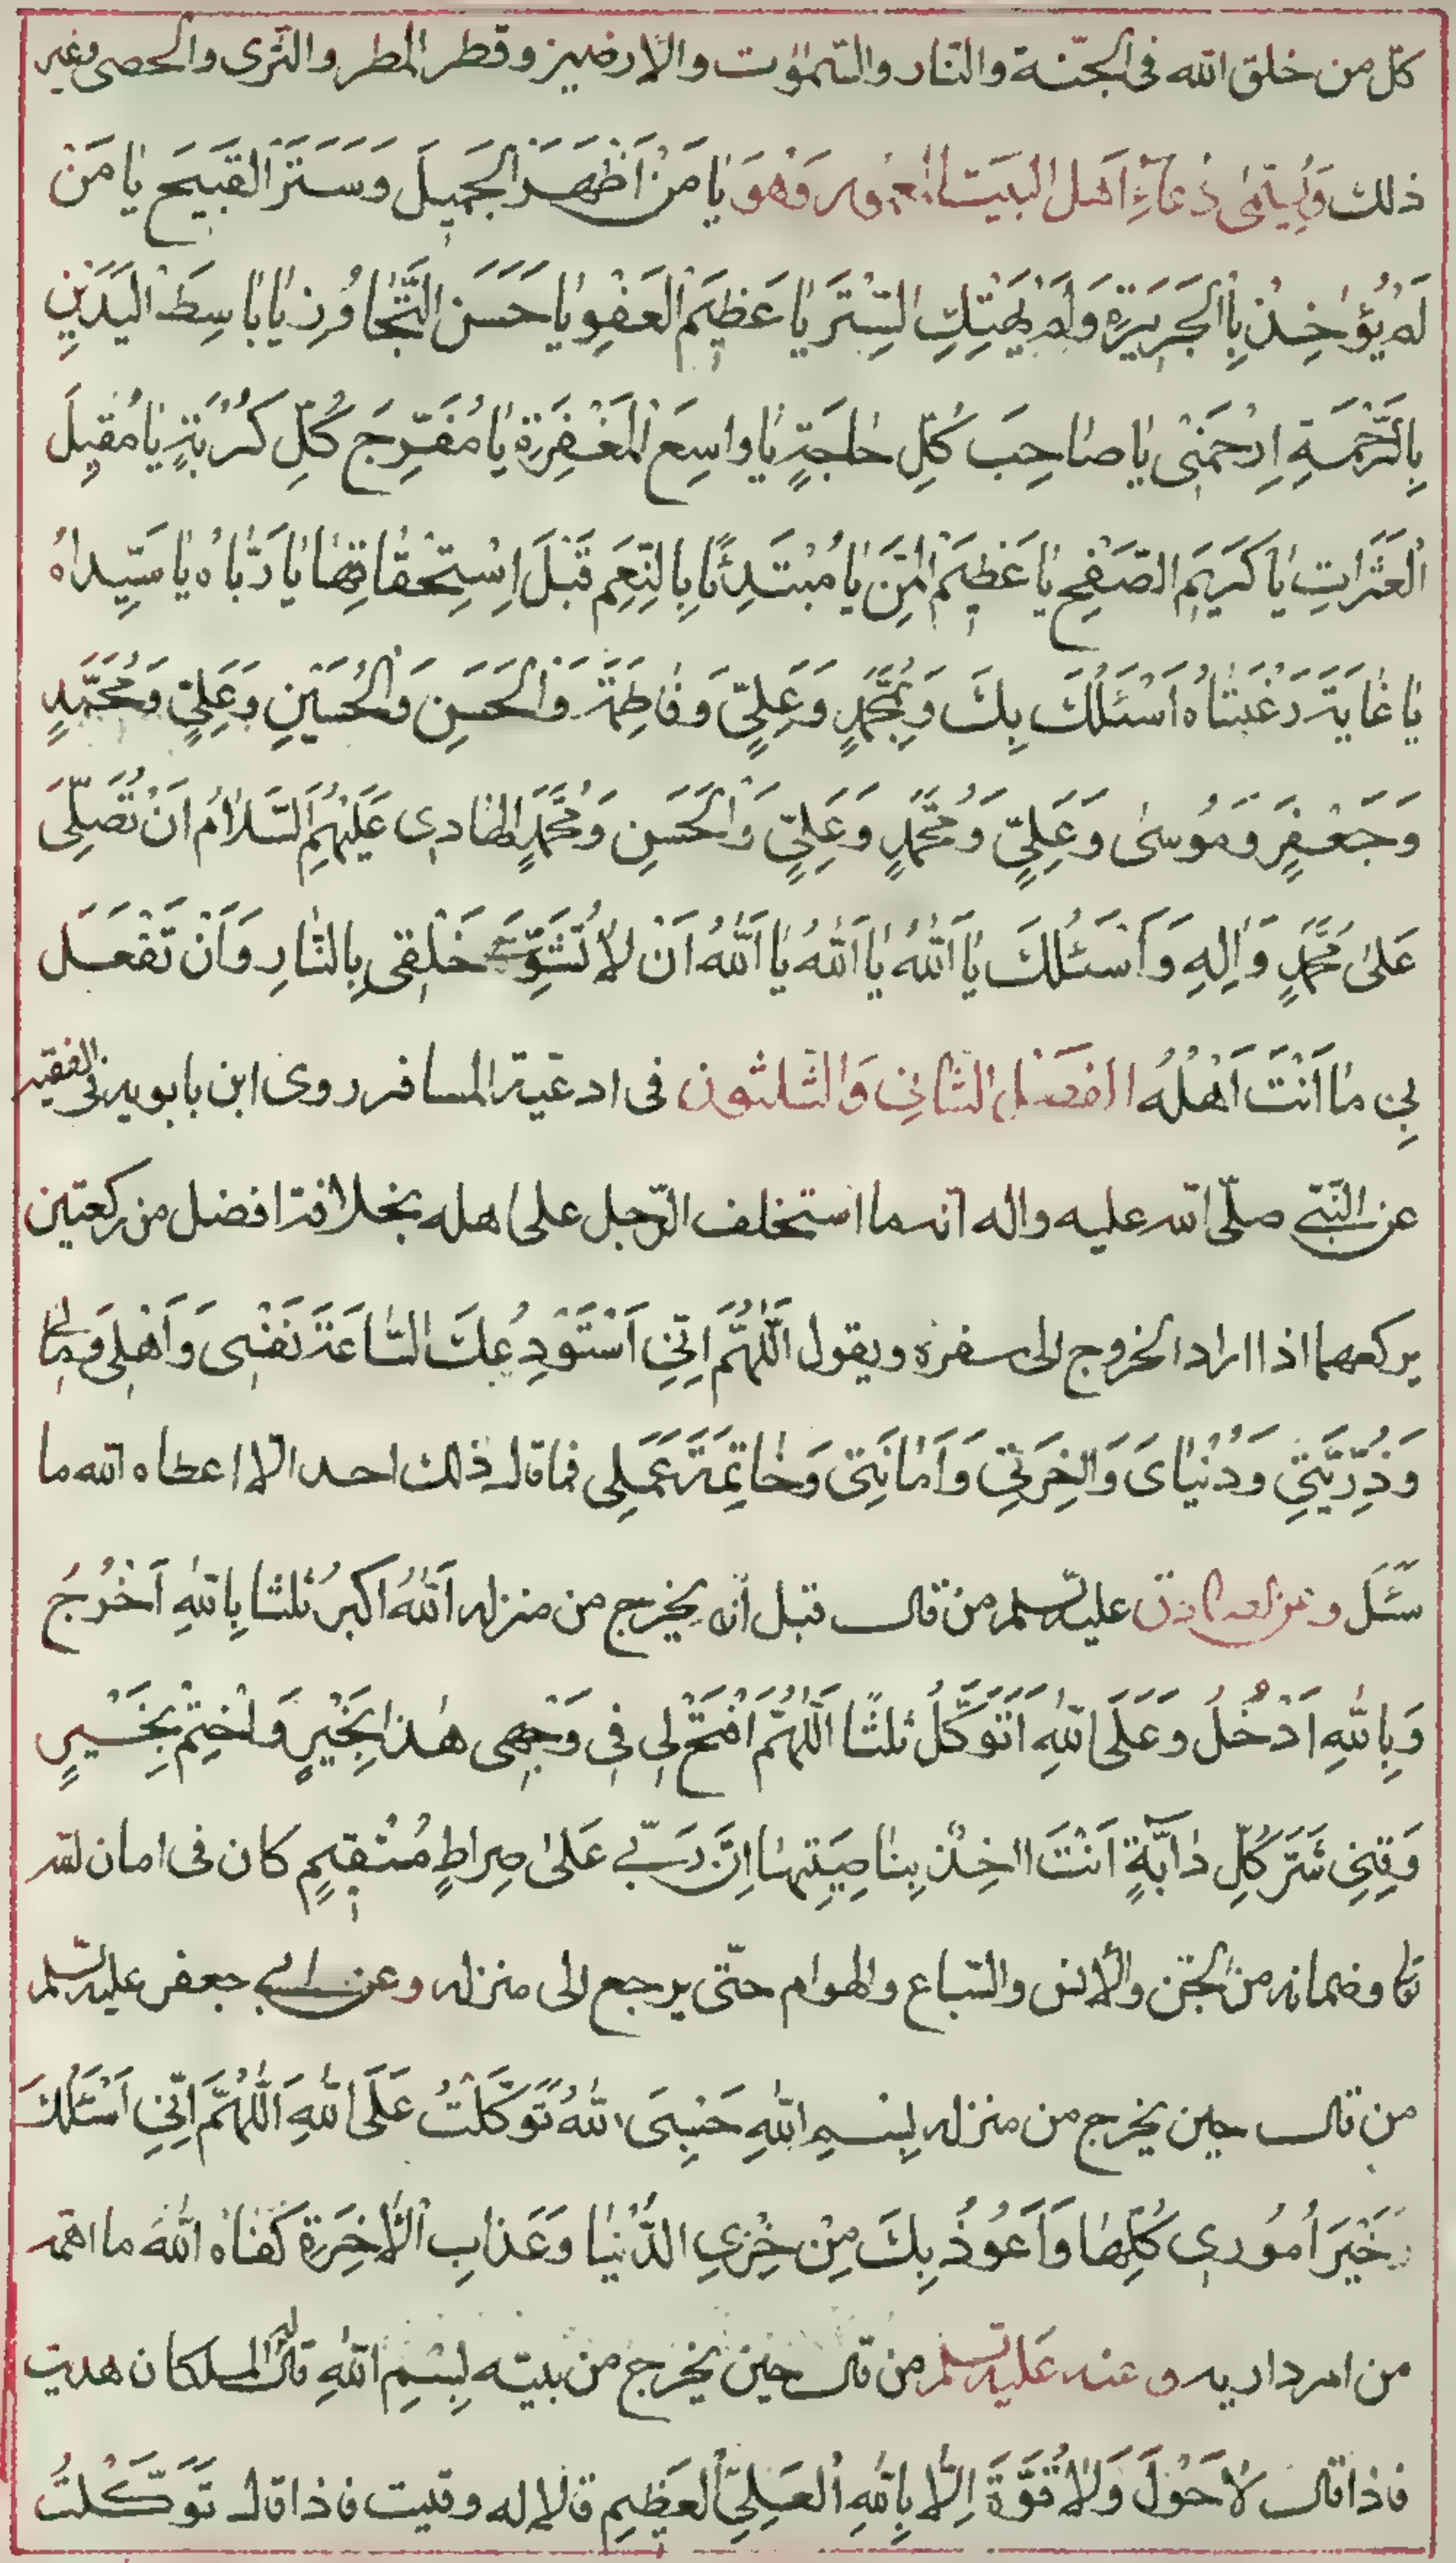 كلّ من خلق الله فى الجنّة والنّار والسّموٰت والارضين وقطر المطر والثّرى والحصى وغير
ذلك وَيُسَمّىٰ دُعَآءِ اَهْلِ الْبَيْتِ الْمَعْمُورِ وَهُوَ يٰا مَنْ اَظْهَرَ الْجَمِيلَ وَسَتَرَ الْقَبِيحَ يٰا مَنْ
لَمْ يُؤٰخِذْ بِالْجَرِيرَةِ وَلَمْ يَهْتِكِ السِّتْرَ يٰا عَظِيمَ الْعَفْوِ يٰا حَسَنَ التَّجٰاوُزِ يٰا بٰاسِطَ الْيَدَيْنِ
بِالرَّحْمَةِ اِرْحَمْنِى يٰا صٰاحِبَ كُلِّ حٰاجَةٍ يٰا وٰاسِعَ الْمَغْفِرَةِ يٰا مُفَرِّجَ كُلِّ كُرْبَةٍ يٰا مُقِيلَ
الْعَثَرَاتِ يٰا كَرِيمَ الصَّفْحِ يٰا عَظِيمَ الْمَنِّ يٰا مُبْتَدِئًا بِالنِّعَمِ قَبْلَ اِسْتِحْقٰاقِهٰا يٰا رَبّٰاهُ يٰا سَيِّدٰاهُ
يٰا غٰايَةَ رَغْبَتٰاهُ اَسْئَلُكَ بِكَ وَبِمُحَمَّدٍ وَعَلِىٍّ وَفٰاطِمَةَ وَالْحَسَنِ وَالْحُسَيْنِ وَعَلِىٍّ وَمُحَمَّدٍ
وَجَعْفَرٍ وَمُوسىٰ وَعَلِىٍّ وَمُحَمَّدٍ وَعَلِىٍّ وَالْحَسَنِ وَمُحَمَّدٍ الهٰادِى عَلَيْهِمُ السَّلاٰمُ اَنْ تُصَلِّىَ
عَلىٰ مُحَمَّدٍ وَاٰلِهِ وَاَسْئَلُكَ يٰا اَللّٰهُ يٰا اَللّٰهُ يٰا اَللّٰهُ اَنْ لاٰ تُشَوِّهَ خَلْقِى بِالنّٰارِ وَاَنْ تَفْعَلَ
بِى مٰا اَنْتَ اَهْلُهُ الفَصْلُ الثّٰانِى وَالثّلٰثون فى ادعية المسافر روى ابن بابويه فى الفقيه
عن النّبىّ صلّى الله عليه واله انه ما استخلف الرّجل على اهله بخلافة افضل من ركعتين
يركعهما اذا اراد الخروج الى سفره ويقول اَللّٰهُمَّ اِنِّى اَسْتَوْدِعُكَ السّٰاعَةَ نَفْسِى وَاَهْلِى وَمٰالِى
وَذُرِّيَّتِى وَدُنْيٰاىَ وَاٰخِرَتِى وَاَمٰانَتِى وَخٰاتِمَةَ عَمَلِى فما قال ذلك احد الاّ اعطاه الله ما
سَئَلَ وعن الصادق عليه السلم من قال قبل ان يخرج من منزله اَللّٰهُ اَكْبَرُ ثلثا بِاللّٰهِ اَخْرُجُ
وَبِاللّٰهِ اَدْخُلُ وَعَلَى اللّٰهِ اَتَوَكَّلُ ثلثًا اَللّٰهُمَّ افْتَحْ لِى فِى وَجْهِى هٰذَا بِخَيْرٍ وَاخْتِمْ بِخَيْرٍ
وَقِنِى شَرَّ كُلِّ دٰابَّةٍ اَنْتَ اٰخِذٌ بِنٰاصِيَتِهٰا اِنَّ رَبِّى عَلىٰ صِرٰاطٍ مُسْتَقِيمٍ كان فى امان الله
تعا وضمانه من الجنّ والانس والسّباع والهوام حتّى يرجع الى منزله وعن ابى جعفر عليه السلم
من قال حين يخرج من منزله بِسْمِ اللّٰهِ حَسْبِىَ اللّٰهُ تَوَكَّلْتُ عَلَى اللّٰهِ اَللّٰهُمَّ اِنِّى اَسْئَلُكَ
خَيْرَ اُمُورِى كُلِّهٰا وَاَعُوذُ بِكَ مِنْ خِزْىِ الدُّنْيٰا وَعَذٰابِ الْاٰخِرَةِ كَفٰاهُ اللّٰهُ ما اهمّه
من امر داريه وعنه عليه السلم من قال حين يخرج من بيته بِسْمِ اللّٰهِ قال له الملكان هديت
فاذا قال لاٰ حَوْلَ وَلاٰ قُوَّةَ اِلاّٰ بِاللّٰهِ الْعَلِىِّ الْعَظِيمِ قالا له وقيت فاذا قال تَوَكَّلْتُ